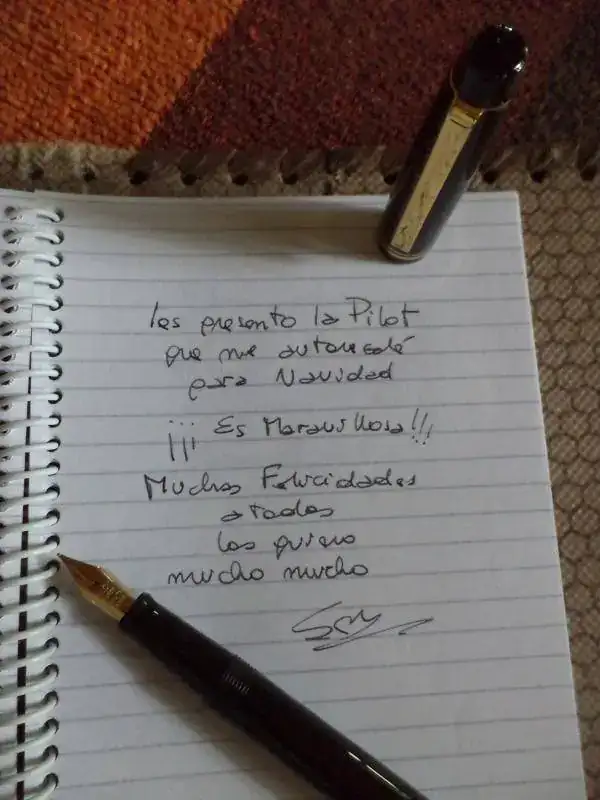 les presento la Pilot
que me autoregalé
para Navidad
¡¡¡ Es Maravillosa!!!
Muchas Felicidades
a todos
los quiero
mucho mucho